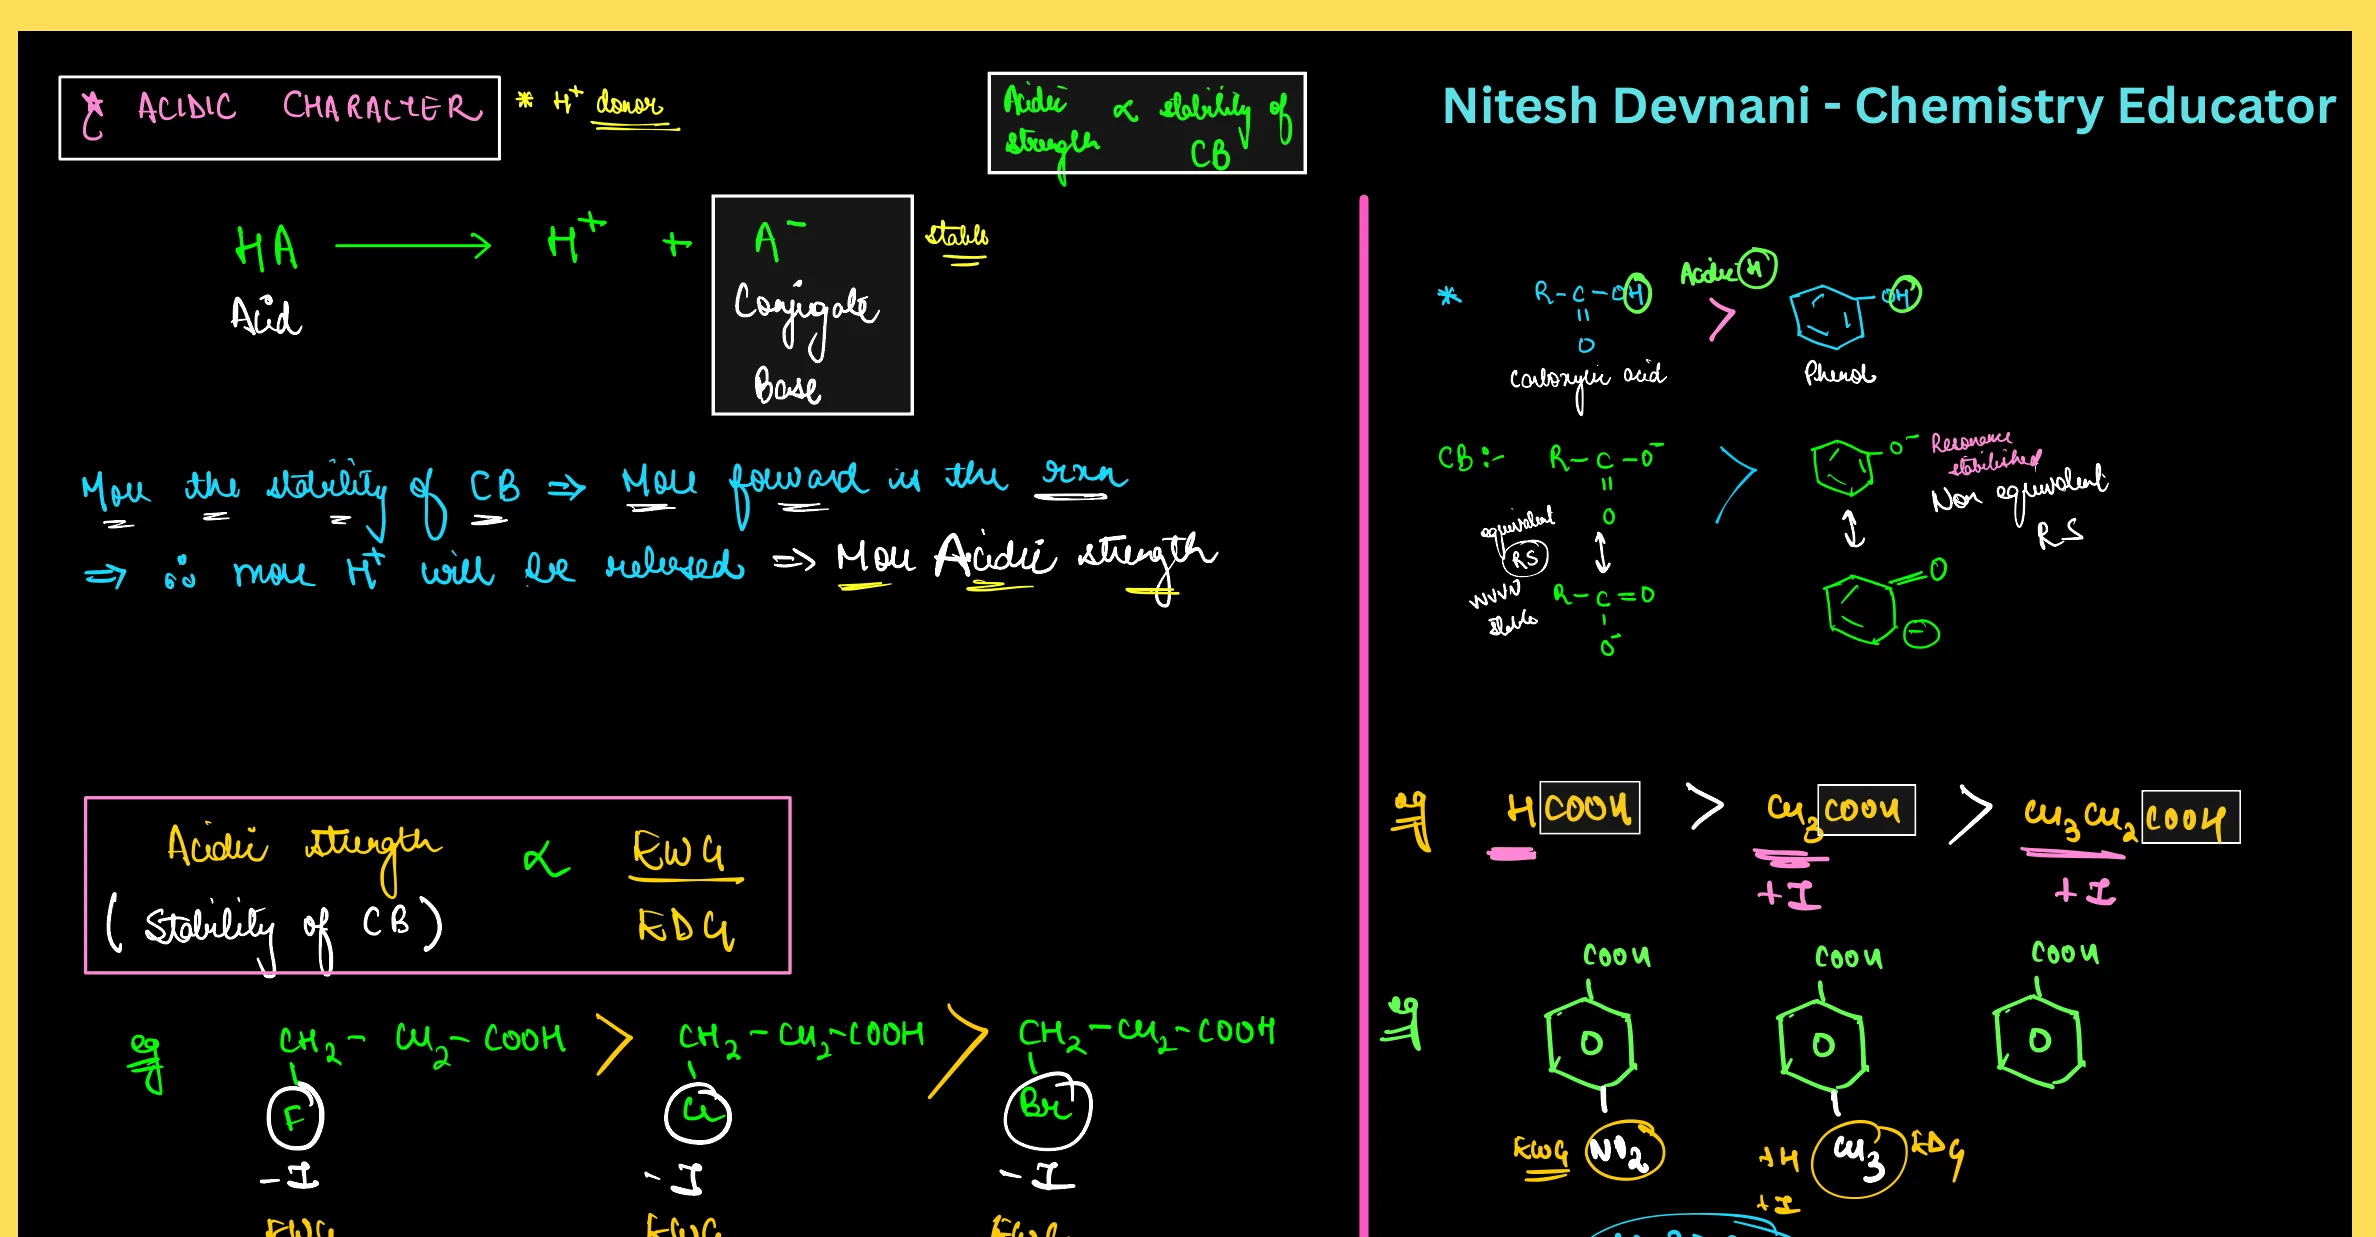 * ACIDIC CHARACTER
* H⁺ donor
Acidic strength ∝ stability of CB
Nitesh Devnani - Chemistry Educator
HA ⟶ H⁺ + A⁻ stable
Acid
Conjugate
Base
More the stability of CB ⇒ More forward is the rxn
⇒ ∴ more H⁺ will be released ⇒ More Acidic strength
Acidic strength ∝ EWG
(Stability of CB) EDG
eg CH₂ - CH₂ - COOH > CH₂ - CH₂ - COOH > CH₂ - CH₂ - COOH
F Cl Br
-I -I -I
EWG EWG EWG
Acidic H
* R-C-OH > OH
O
Carboxylic acid Phenol
CB:- R-C-O⁻ > O⁻ Resonance
stabilished
Non equivalent
RS
O
equivalent
RS
R-C=O O
stable
O⁻ −
eg HCOOH > CH₃COOH > CH₃CH₂COOH
+I +I
COOH COOH COOH
eg
EWG NO₂ +H CH₃ EDG
+I